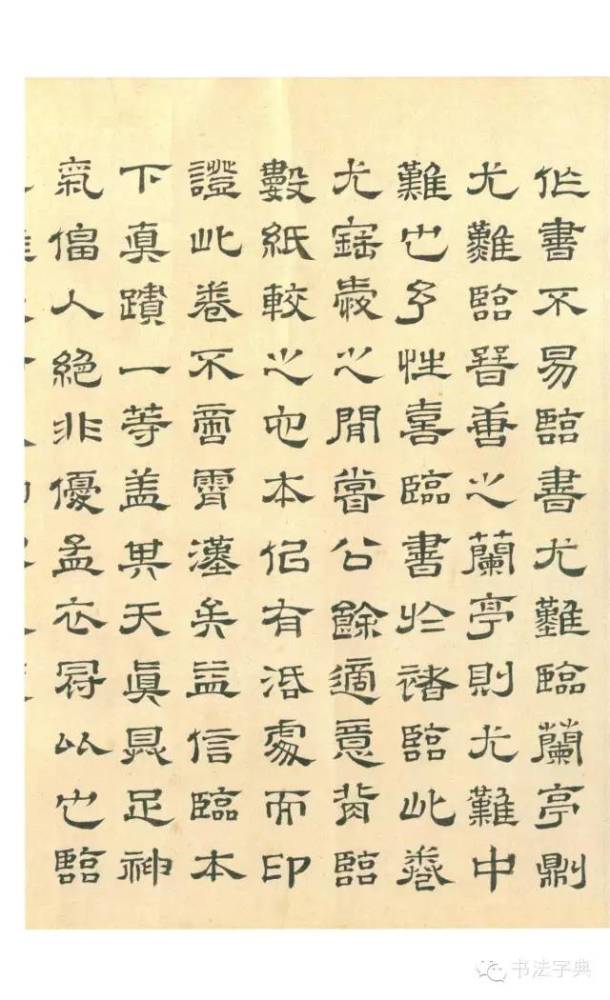 作書不易臨書尤難臨蘭亭則
尤難臨晉善之蘭亭則尤難中
難也予性喜臨書於褚臨此卷
尤寶愛之閒嘗公餘適意背臨
數紙較之它本似有活處而印
證此卷不啻霄漢矣益信臨本
下真蹟一等蓋其天真具足神
氣偪人絕非優孟衣冠比也臨
书法字典